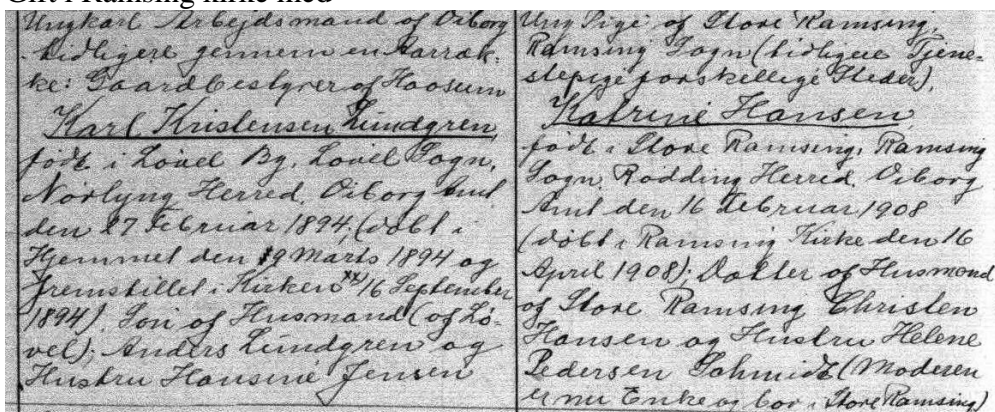 Gift i Ramsing kirke med
Ungkarl Arbejdsmand af Viborg
tidligere gennem en Aarræk-
ke: Gaardbestyrer af Hoosum
Karl Kristensen Lundgren,
født i Løvel By, Løvel Sogn,
Nørlyng Herred, Viborg Amt
den 27 Februar 1894, (døbt i
Hjemmet den 19 Marts 1894 og
fremstillet i Kirken 16 September
1894). Søn af Husmand (af Lø-
vel); Anders Lundgren og
Hustru Hansine Jensen
Ung Pige af Store Ramsing,
Ramsing Sogn (tidligere Tjene-
stepige forskellige Steder),
Katrine Hansen
født i Store Ramsing, Ramsing
Sogn, Rødding Herred, Viborg
Amt den 16 Februar 1908
(døbt i Ramsing Kirke den 16
April 1908); Datter af Husmand
af Store Ramsing Christen
Hansen og Hustru Helene
Pedersen Schmidt (Moderen
er nu Enke og bor i Store Ramsing)